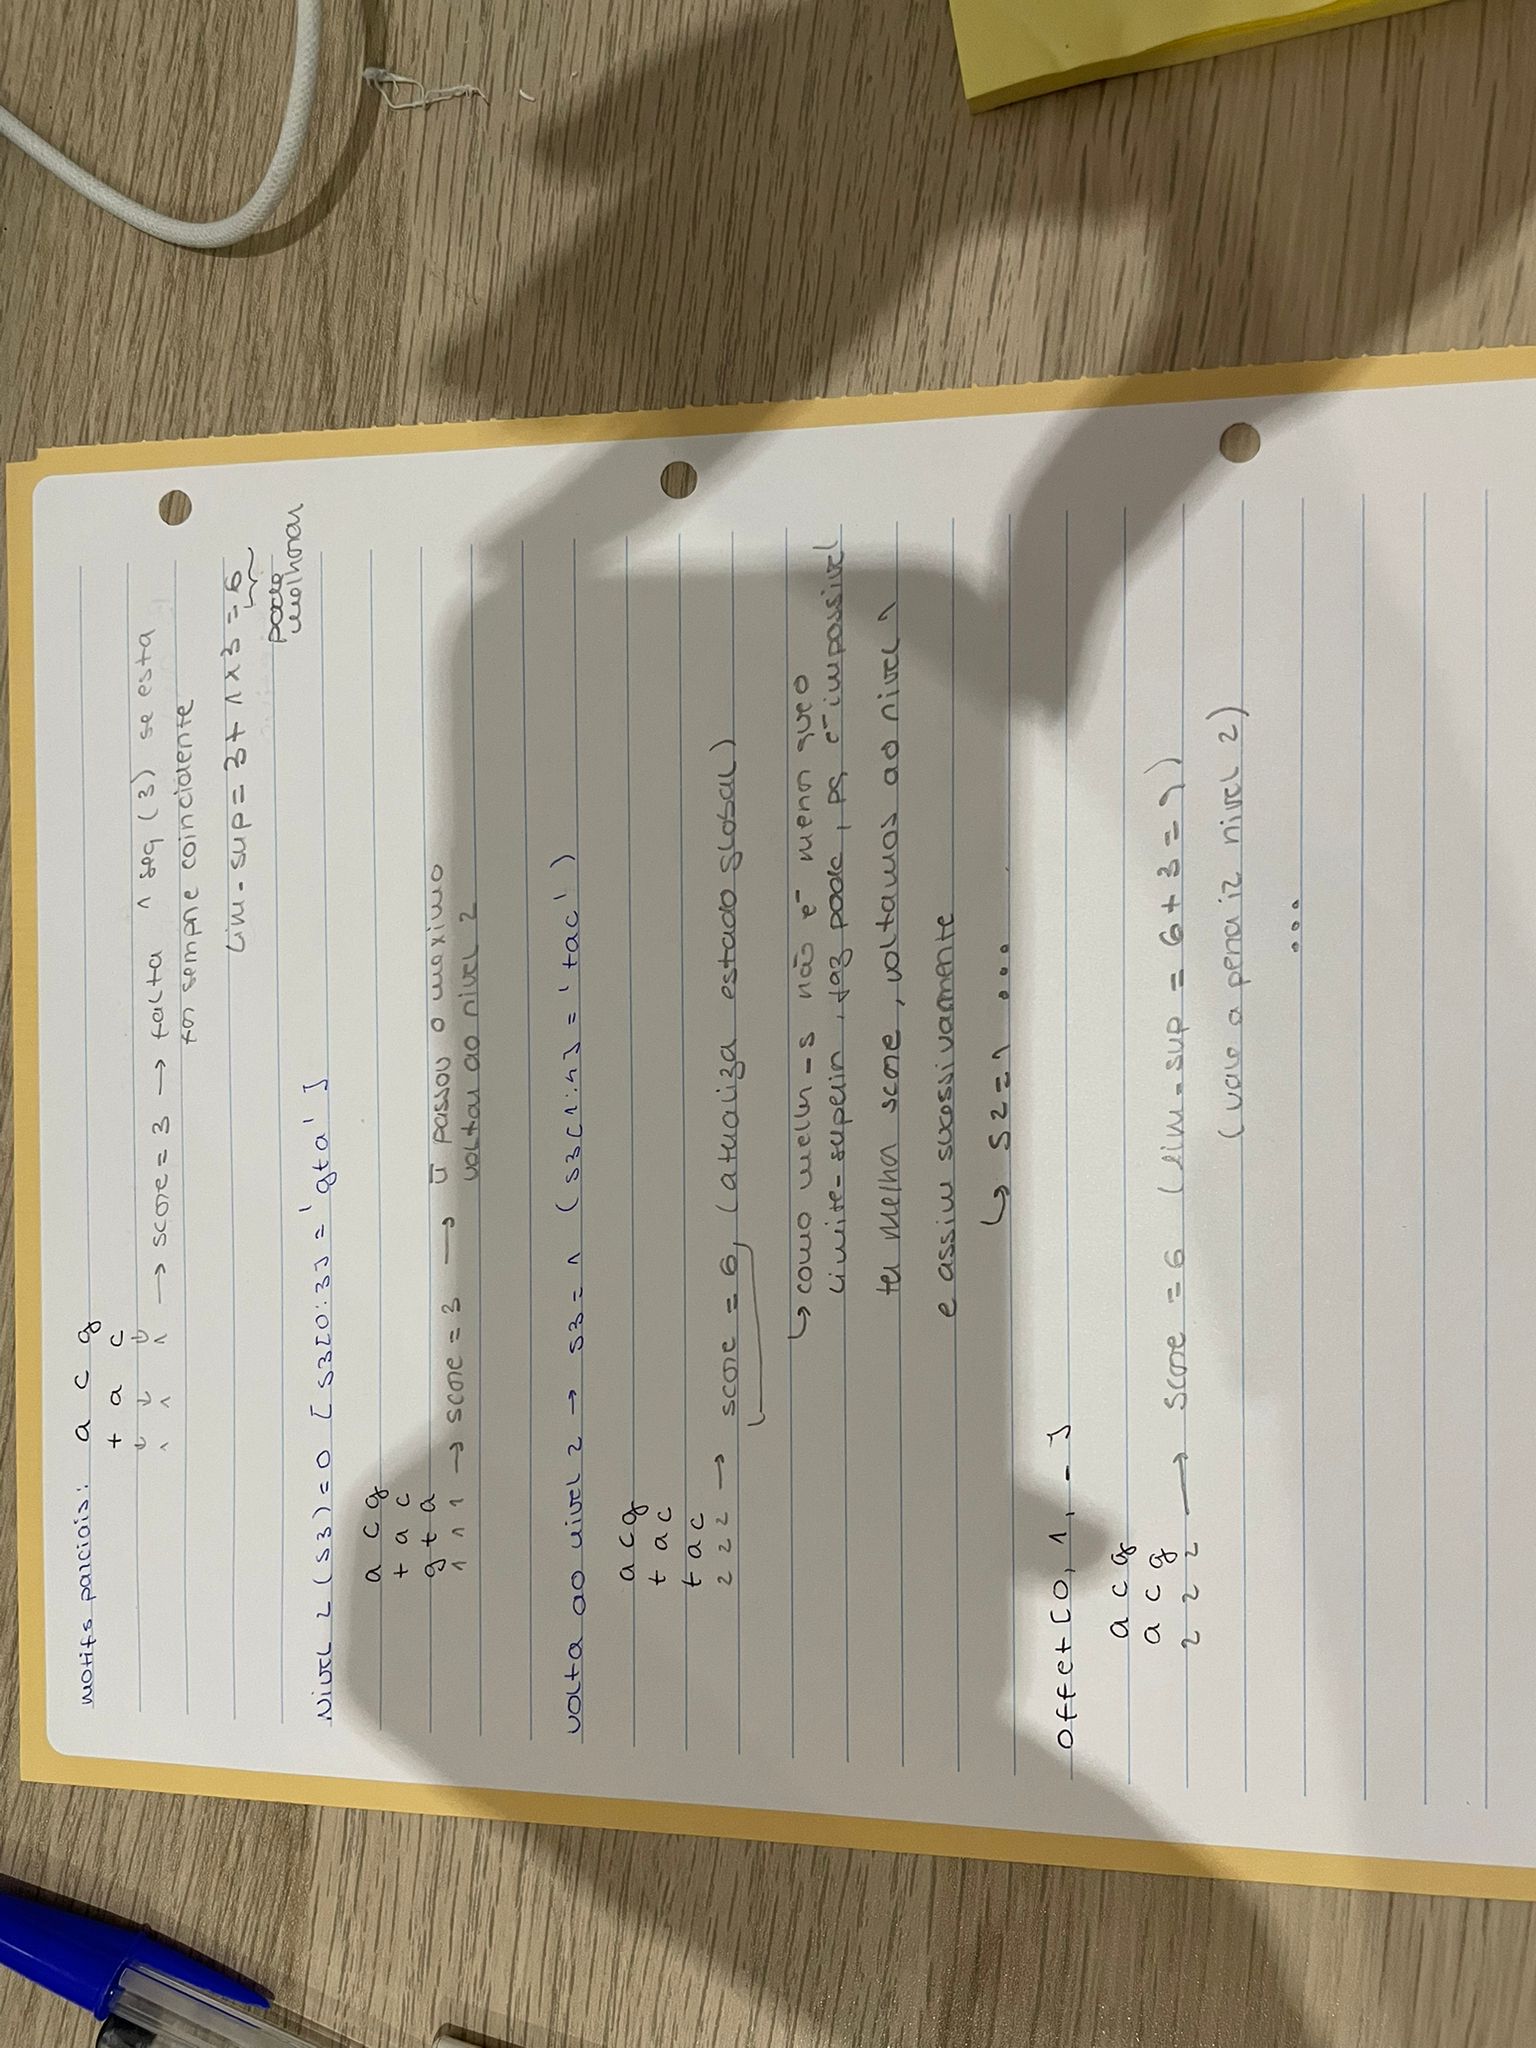 motifs parciais: a c g
t a c
↓ ↓ ↓
1 1 1 → score = 3 → falta 1 seq (3) se esta
for sempre coincidente
lim-sup = 3 + 1x3 = 6
pode
melhorar
Nivel 2 (s3) = 0 [s3[0:3] = 'gta']
a c g
t a c
g t a
1 1 1 → score = 3 → ñ passou o maximo
voltar ao nivel 2
volta ao nivel 2 → s3 = 1 (s3[1:4] = 'tac')
a c g
t a c
t a c
2 2 2 → score = 6, (atualiza estado global)
↳ como melhor-s não é menor que o
limite-superior, faz poda, pq é impossivel
ter melhor score, voltamos ao nivel 1
e assim sucessivamente
↳ s2 = 1 ...
offet [0, 1, -]
a c g
a c g
2 2 2 → score = 6 (lim-sup = 6 + 3 = 9)
(vale a pena ir nivel 2)
...